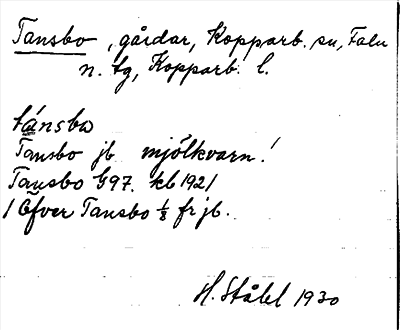 Tansbo, gårdar, Kopparb. sn, Falu
n. tg, Kopparb. l.
tánsbω
Tansbo jb mjölkvarn!
Tansbo G97. kb 1921
/ Öfver Tansbo ½ fr jb.
H. Ståhl 1930